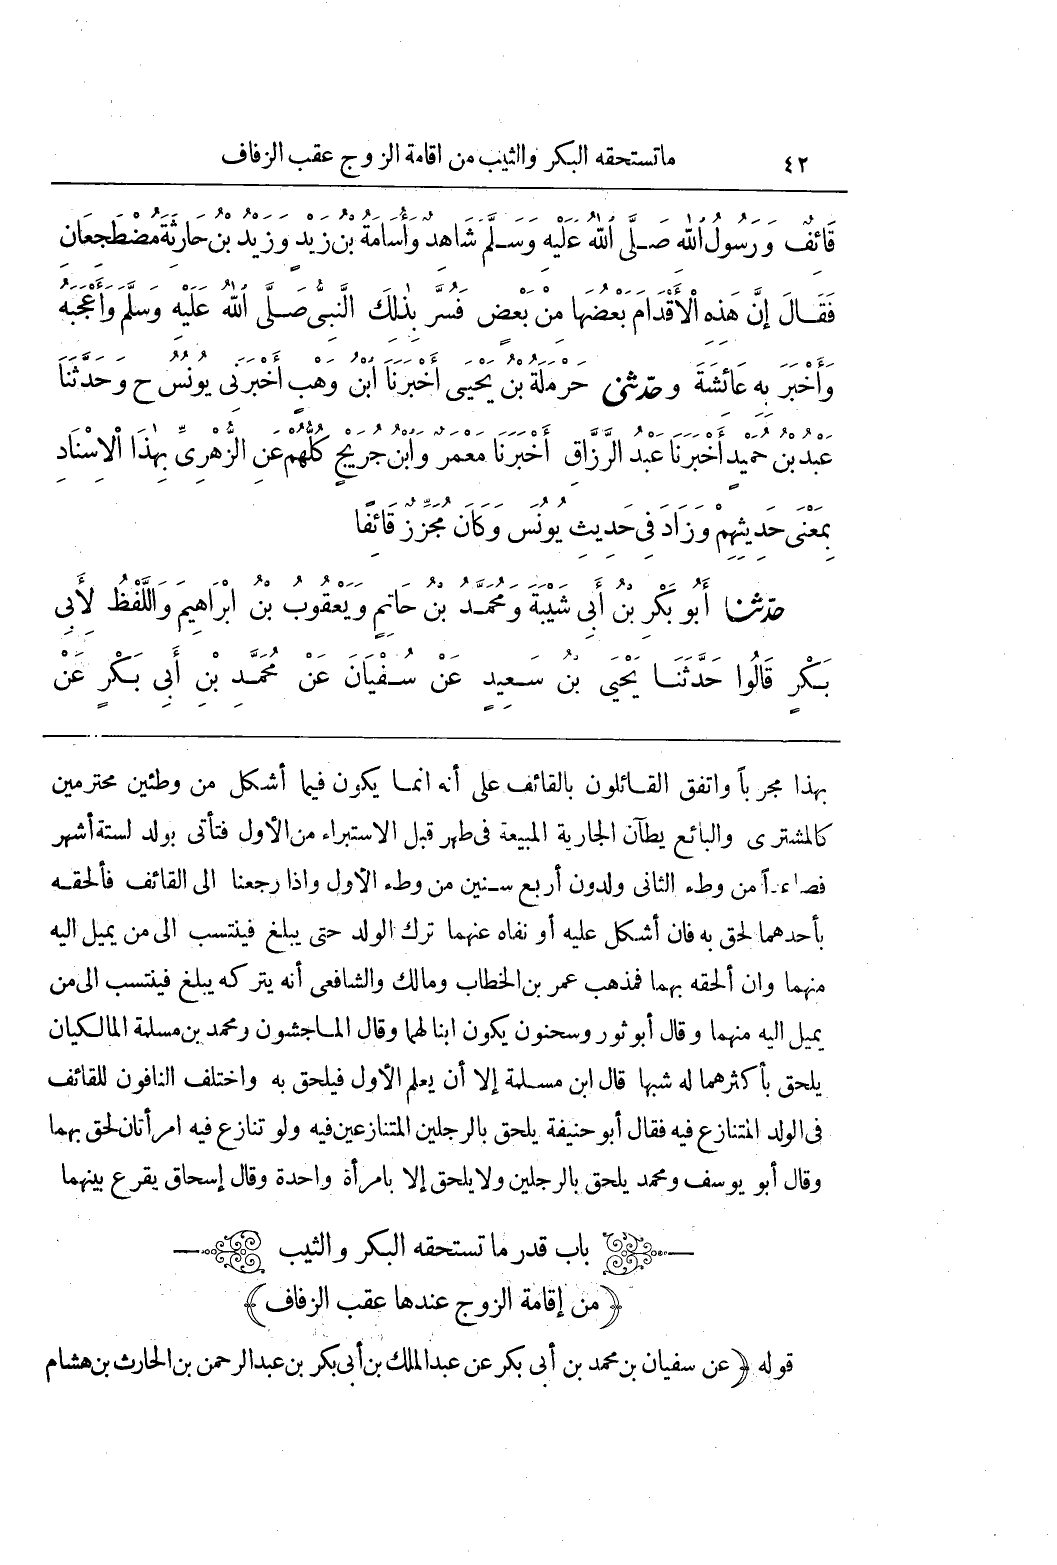 ٤٢ ماتستحقه البكر والثيب من اقامة الزوج عقب الزفاف
قَائِفٌ وَرَسُولُ اللهِ صَلَّى اللهُ عَلَيْهِ وَسَلَّمَ شَاهِدٌ وَأُسَامَةُ بْنُ زَيْدٍ وَزَيْدُ بْنُ حَارِثَةَ مُضْطَجِعَانِ
فَقَالَ إِنَّ هَذِهِ الْأَقْدَامَ بَعْضُهَا مِنْ بَعْضٍ فَسُرَّ بِذٰلِكَ النَّبِىُّ صَلَّى اللهُ عَلَيْهِ وَسَلَّمَ وَأَعْجَبَهُ
وَأَخْبَرَ بِهِ عَائِشَةَ وحدثنى حَرْمَلَةُ بْنُ يَحْيَى أَخْبَرَنَا ابْنُ وَهْبٍ أَخْبَرَنِى يُونُسُ ح وَحَدَّثَنَا
عَبْدُ بْنُ حُمَيْدٍ أَخْبَرَنَا عَبْدُ الرَّزَّاقِ أَخْبَرَنَا مَعْمَرٌ وَابْنُ جُرَيْجٍ كُلُّهُمْ عَنِ الزُّهْرِىِّ بِهٰذَا الْإِسْنَادِ
بِمَعْنَى حَدِيثِهِمْ وَزَادَ فِى حَدِيثِ يُونُسَ وَكَانَ مُجَزِّزٌ قَائِفًا
حدثنا أَبُو بَكْرِ بْنُ أَبِى شَيْبَةَ وَمُحَمَّدُ بْنُ حَاتِمٍ وَيَعْقُوبُ بْنُ ابْرَاهِيمَ وَاللَّفْظُ لِأَبِى
بَكْرٍ قَالُوا حَدَّثَنَا يَحْيَى بْنُ سَعِيدٍ عَنْ سُفْيَانَ عَنْ مُحَمَّدِ بْنِ أَبِى بَكْرٍ عَنْ
بهذا مجرباً واتفق القائلون بالقائف على أنه انما يكون فيما أشكل من وطئين محترمين
كالمشترى والبائع يطآن الجارية المبيعة فى طهر قبل الاستبراء من الأول فتأتى بولد لستة أشهر
فصاعداً من وطء الثانى ولدون أربع سنين من وطء الأول واذا رجعنا الى القائف فألحقه
بأحدهما لحق به فان أشكل عليه أو نفاه عنهما ترك الولد حتى يبلغ فينتسب الى من يميل اليه
منهما وان ألحقه بهما فمذهب عمر بن الخطاب ومالك والشافعى أنه يتركه يبلغ فينتسب الى من
يميل اليه منهما وقال أبو ثور وسحنون يكون ابنا لهما وقال الماجشون ومحمد بن مسلمة المالكيان
يلحق بأكثرهما له شبها قال ابن مسلمة إلا أن يعلم الأول فيلحق به واختلف النافون للقائف
فى الولد المتنازع فيه فقال أبو حنيفة يلحق بالرجلين المتنازعين فيه ولو تنازع فيه امرأتان لحق بهما
وقال أبو يوسف ومحمد يلحق بالرجلين ولا يلحق إلا بامرأة واحدة وقال إسحاق يقرع بينهما
باب قدر ما تستحقه البكر والثيب
﴿من إقامة الزوج عندها عقب الزفاف﴾
قوله ﴿عن سفيان بن محمد بن أبى بكر عن عبد الملك بن أبى بكر بن عبد الرحمن بن الحارث بن هشام